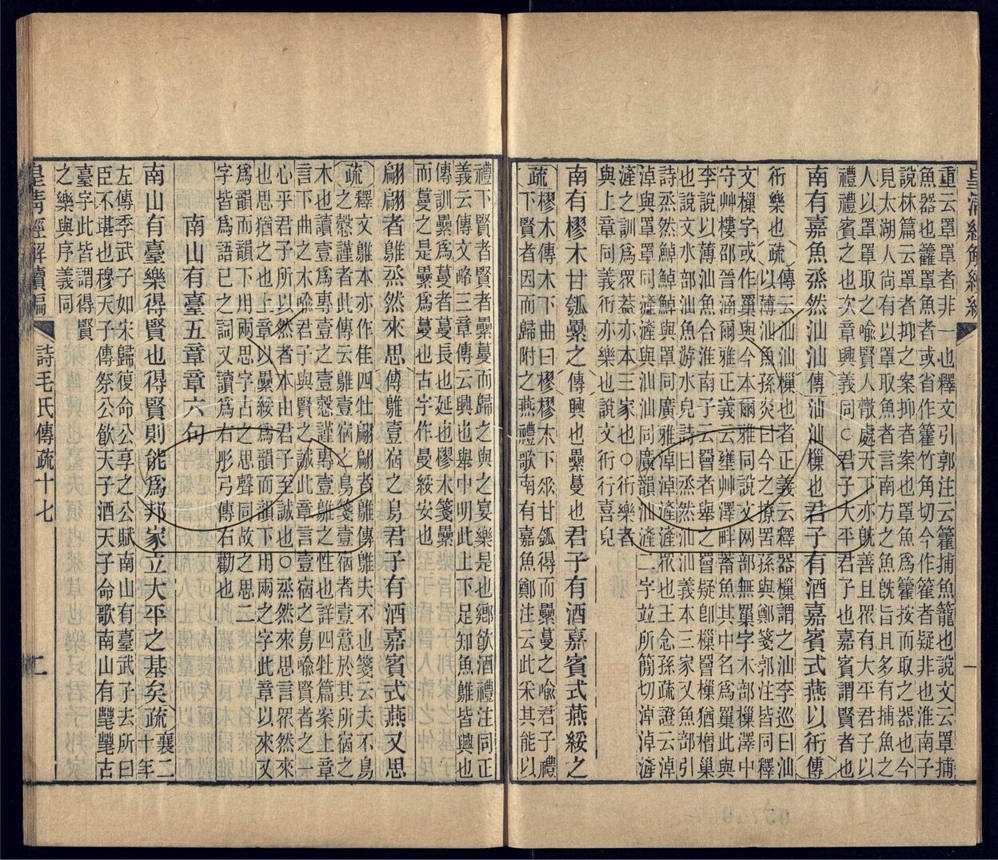 皇清經解續編
重云罩罩者非一也釋文引郭注云籗捕魚籠也說文云罩捕
魚器也籗罩魚者或省作籱竹角切今作篧者疑非也淮南子
說林篇云罩者抑之案抑者案也罩魚為籗按而取之器也今
見太湖人尚有以罩取魚者言南方之魚旣旨且多有捕魚之
人以罩罩取之喻賢人散處天下亦旣善且眾有大平君子以
禮禮賓之也次章興義同○君子大平君子也嘉賓謂賢者也
南有嘉魚烝然汕汕傳汕汕樔也君子有酒嘉賓式燕以衎傳
衎樂也疏傳云汕汕樔也者正義云釋器樔謂之汕李巡曰汕
以薄汕魚孫炎曰今之撩罟孫與鄭箋郭注皆同釋
文樔字或作罺與今本爾雅同說文网部無罺字木部樔澤中
守艸樓邵晉涵爾雅正義云繞澤畔蓄魚其中名為罺此與
李說以薄汕魚合淮南子云罾者舉之罾疑卽樔罾樔猶橧巢
也說文水部汕魚游水皃詩曰烝然汕汕義本三家又魚部引
詩烝然鯙鯙鯙與罩同廣雅淖淖淖淖眾也王念孫疏證云淖
淖與罩罩同汕汕同廣韻汕滻淖二字竝所簡切淖淖滻
滻之訓為眾蓋亦本三家也○衎樂者
與上章同義衎亦樂也說文衎行喜皃
南有樛木甘瓠纍之傳興也纍蔓也君子有酒嘉賓式燕綏之
疏樛木傳木下曲曰樛樛木下曲甘瓠得而纍蔓之喻君子禮
下賢者因而歸附之燕禮歌南有嘉魚鄭注云此采其能以
禮下賢者賢者纍蔓而歸之與之宴樂是也鄉飲酒禮注同正
義云傳文略三章傳云興也舉中明此上下足知魚鵻皆興也
傳訓纍為蔓者蔓長也延也樛木箋纍
而蔓之是纍為蔓也古字作曼綏安也
翩翩者鵻烝然來思傳鵻壹宿之鳥君子有酒嘉賓式燕又思
疏釋文鵻本亦作隹四牡翩翩者鵻傳鵻夫不也箋云夫不鳥
之慤謹者此傳云鵻壹宿之鳥箋壹宿者壹意於其所宿之
木也壹讀為專壹之壹慤謹專壹鵻之性也詳四牡篇案上章
言下曲之木喻君子下賢之誠此章言壹宿之鳥喻賢者之來
心乎君子所以然者本由君子至誠也○烝然來思言眾然來
也思猶之也上章以纍綏為韻而韻下用兩之字此章以來又
為韻而韻下用兩思字古之思聲同故之思二
字皆為語已之詞又讀為右彤弓傳右勸也
南山有臺五章章六句
南山有臺樂得賢也得賢則能為邦家立大平之基矣疏襄二十年
左傳季武子如宋歸復命公享之公賦南山有臺武子去所曰
臣不堪也穆天子傳祭公飲天子酒天子命歌南山有䑓䑓古
臺字此皆謂得賢
之樂與序義同
皇清經解續編
詩毛氏傳疏十七
二